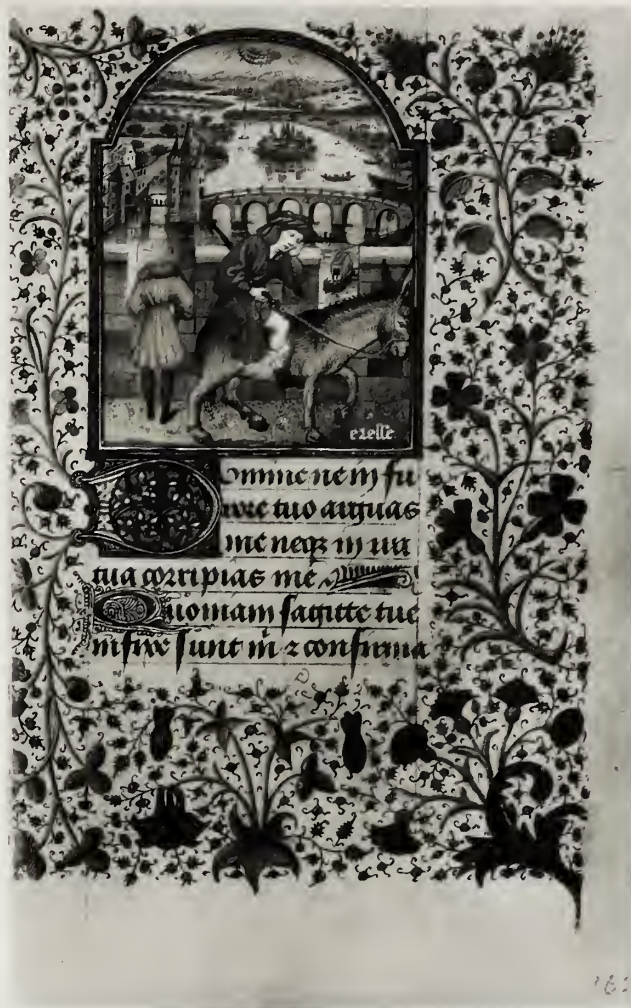 eresse
Domine ne in fu
rore tuo arguas
me neqꝫ in ira
tua corripias me
Quoniam sagitte tue
infixe sunt m̄ ⁊ confirma